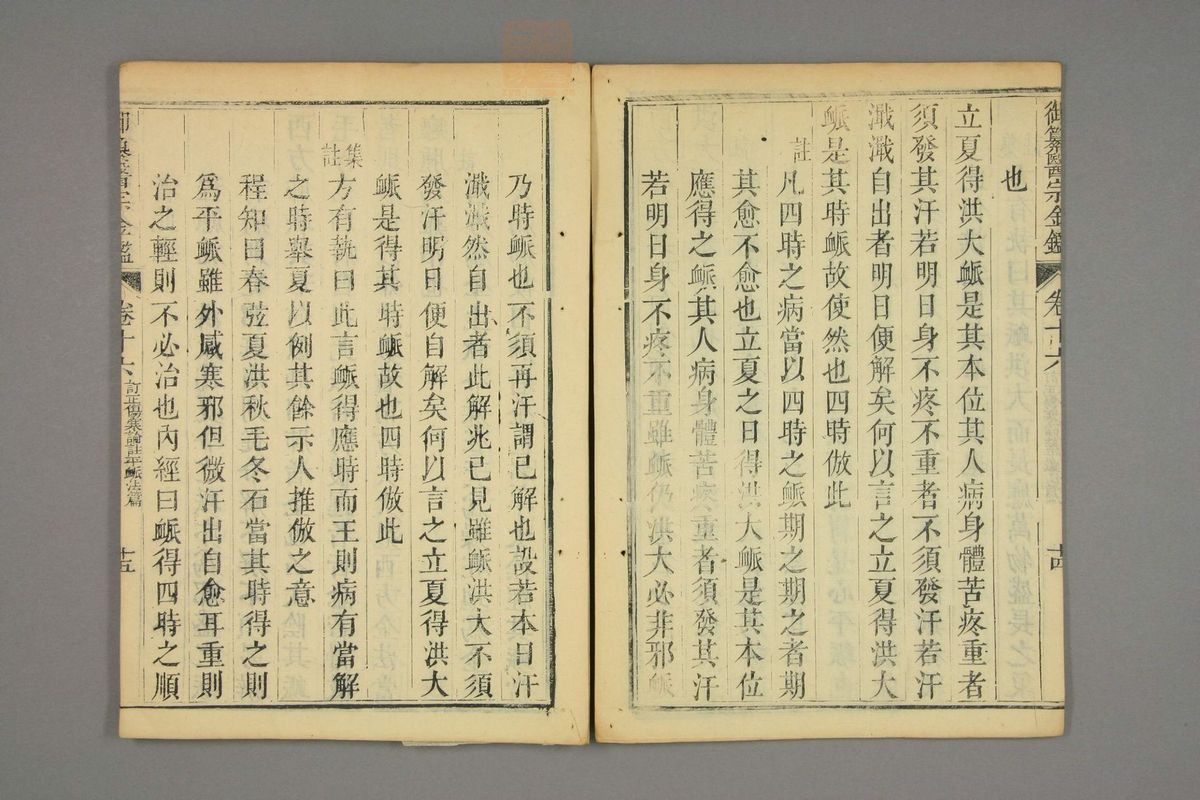 御纂醫宗金鑑 卷十六 十四
也
立夏得洪大䘑是其本位其人病身體苦疼重者
須發其汗若明日身不疼不重者不須發汗若汗
濈濈自出者明日便解矣何以言之立夏得洪大
䘑是其時䘑故使然也四時倣此
註
凡四時之病當以四時之䘑期之期之者期
其愈不愈也立夏之日得洪大䘑是其本位
應得之䘑其人病身體苦疼重者須發其汗
若明日身不疼不重雖䘑仍洪大必非邪䘑
乃時䘑也不須再汗謂已解也設若本日汗
濈濈然自出者此解兆已見雖䘑洪大不須
發汗明日便自解矣何以言之立夏得洪大
䘑是得其時䘑故也四時倣此
集註
方有執曰此言䘑得應時而王則病有當解
之時舉夏以例其餘示人推倣之意
程知曰春弦夏洪秋毛冬石當其時得之則
爲平䘑雖外感寒邪但微汗出自愈耳重則
治之輕則不必治也內經曰䘑得四時之順
御纂醫宗金鑑 卷十六 訂正傷寒論註平䘑法篇 十五